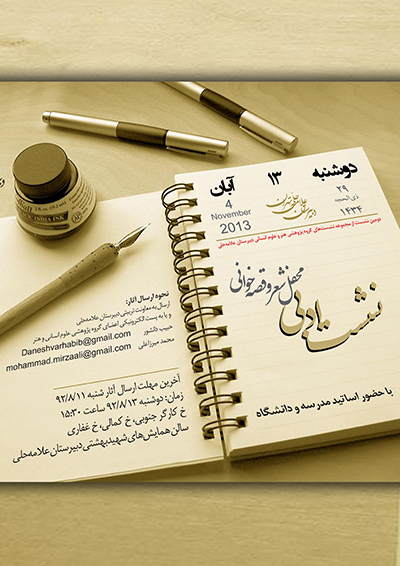 دوشنبه ۱۳ آبان
۲۹
ذی الحجه
۱۴۳۴
4
November
2013
دومین نشست از مجموعه نشست‌های گروه پژوهشی هنر و علوم انسانی دبیرستان علامه‌حلی
محفل شعر و قصه خوانی
نشست ادبی
با حضور اساتید مدرسه و دانشگاه
نحوه ارسال آثار:
ارسال به معاونت تربیتی دبیرستان علامه‌حلی
و یا به پست الکترونیکی اعضای گروه پژوهشی علوم انسانی و هنر
حبیب دانشور
Daneshvarhabib@gmail.com
محمد میرزاعلی
mohammad.mirzaali@gmail.com
آخرین مهلت ارسال آثار شنبه ۹۲/۸/۱۱
زمان: دوشنبه ۹۲/۸/۱۳ ساعت ۱۵:۳۰
خ کارگر جنوبی، خ کمالی، خ غفاری
سالن همایش‌های شهید بهشتی دبیرستان علامه‌حلی
INDIA INK